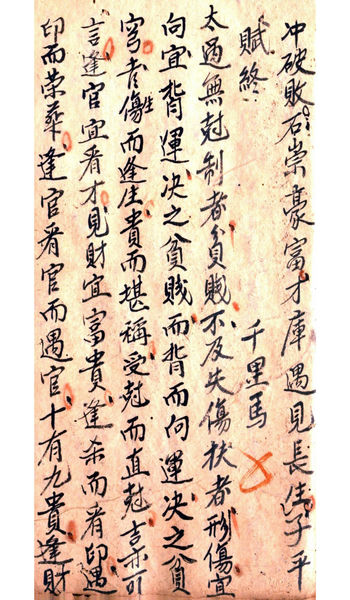 冲破敗石崇豪富才庫遇見長生子平
賦終 千里馬
太過無尅制者貧賤不及失傷扶者刑傷宜
向宜背運决之貧賤而背而向運决之貧
穷者傷生而逢生貴而堪稱受尅而直尅言亦可
言逢官宜看才見財宜富貴逢杀而看印遇
印而荣華逢官看官而遇官十有九貴逢財